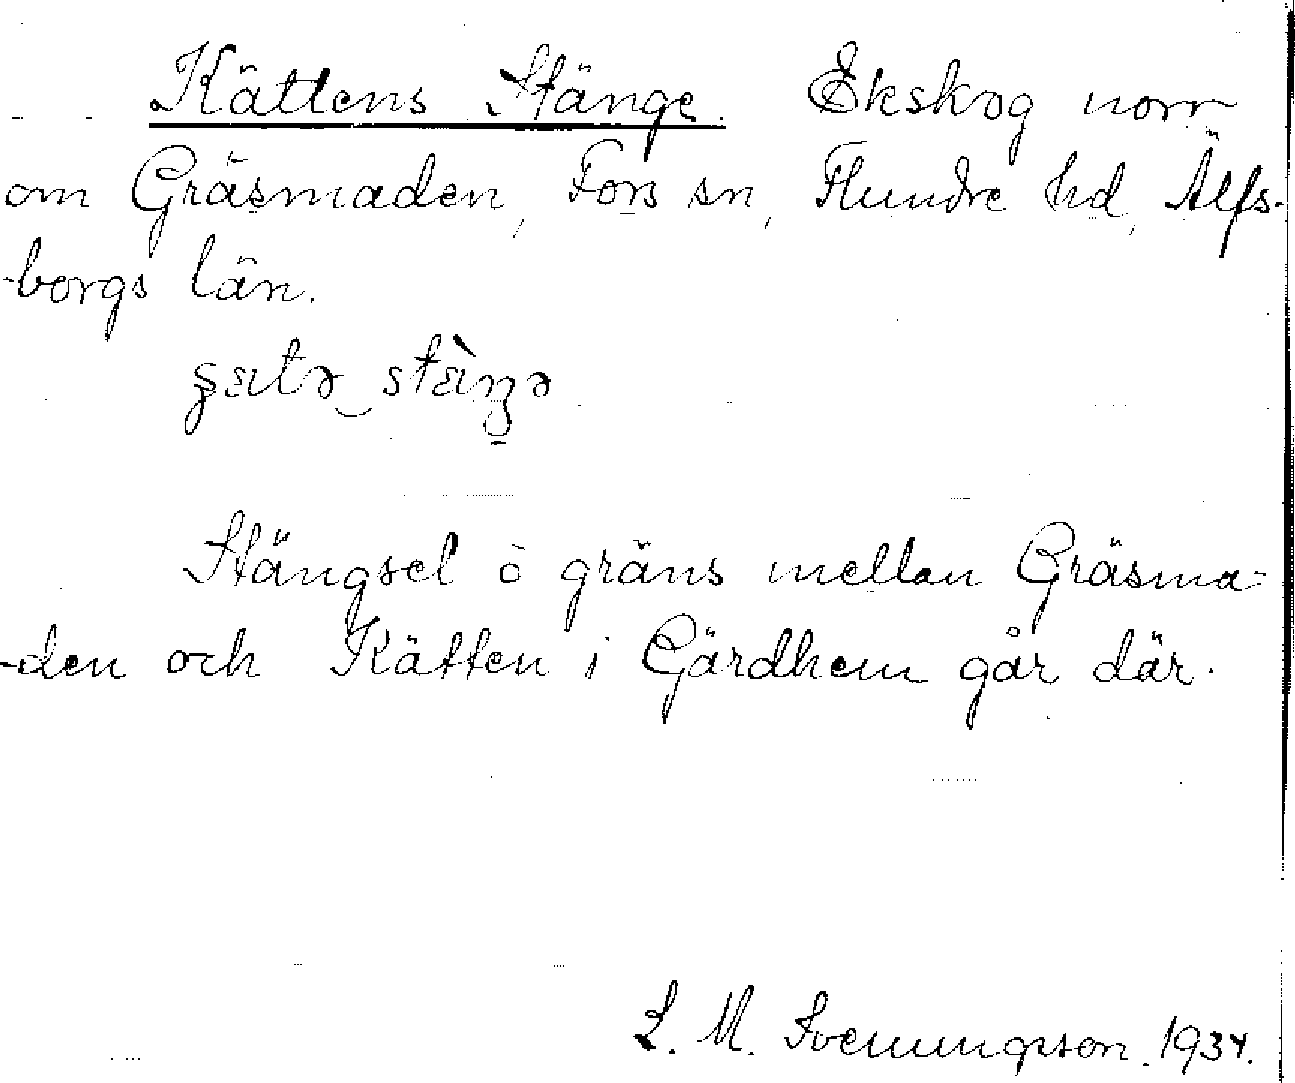 Kättens Stänge. Ekskog norr
om Gräsmaden, Fors sn, Flundre hd, Älfs-
-borgs län.
Stängsel ö gräns mellan Gräsma-
-den och Kätten i Gärdhem går där.
L. M. Svenungsson. 1934.